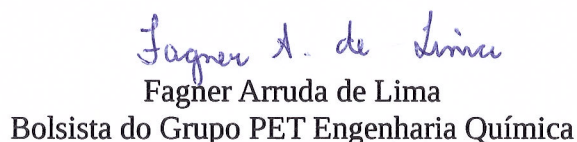 Fagner A. de Lima
Fagner Arruda de Lima
Bolsista do Grupo PET Engenharia Química